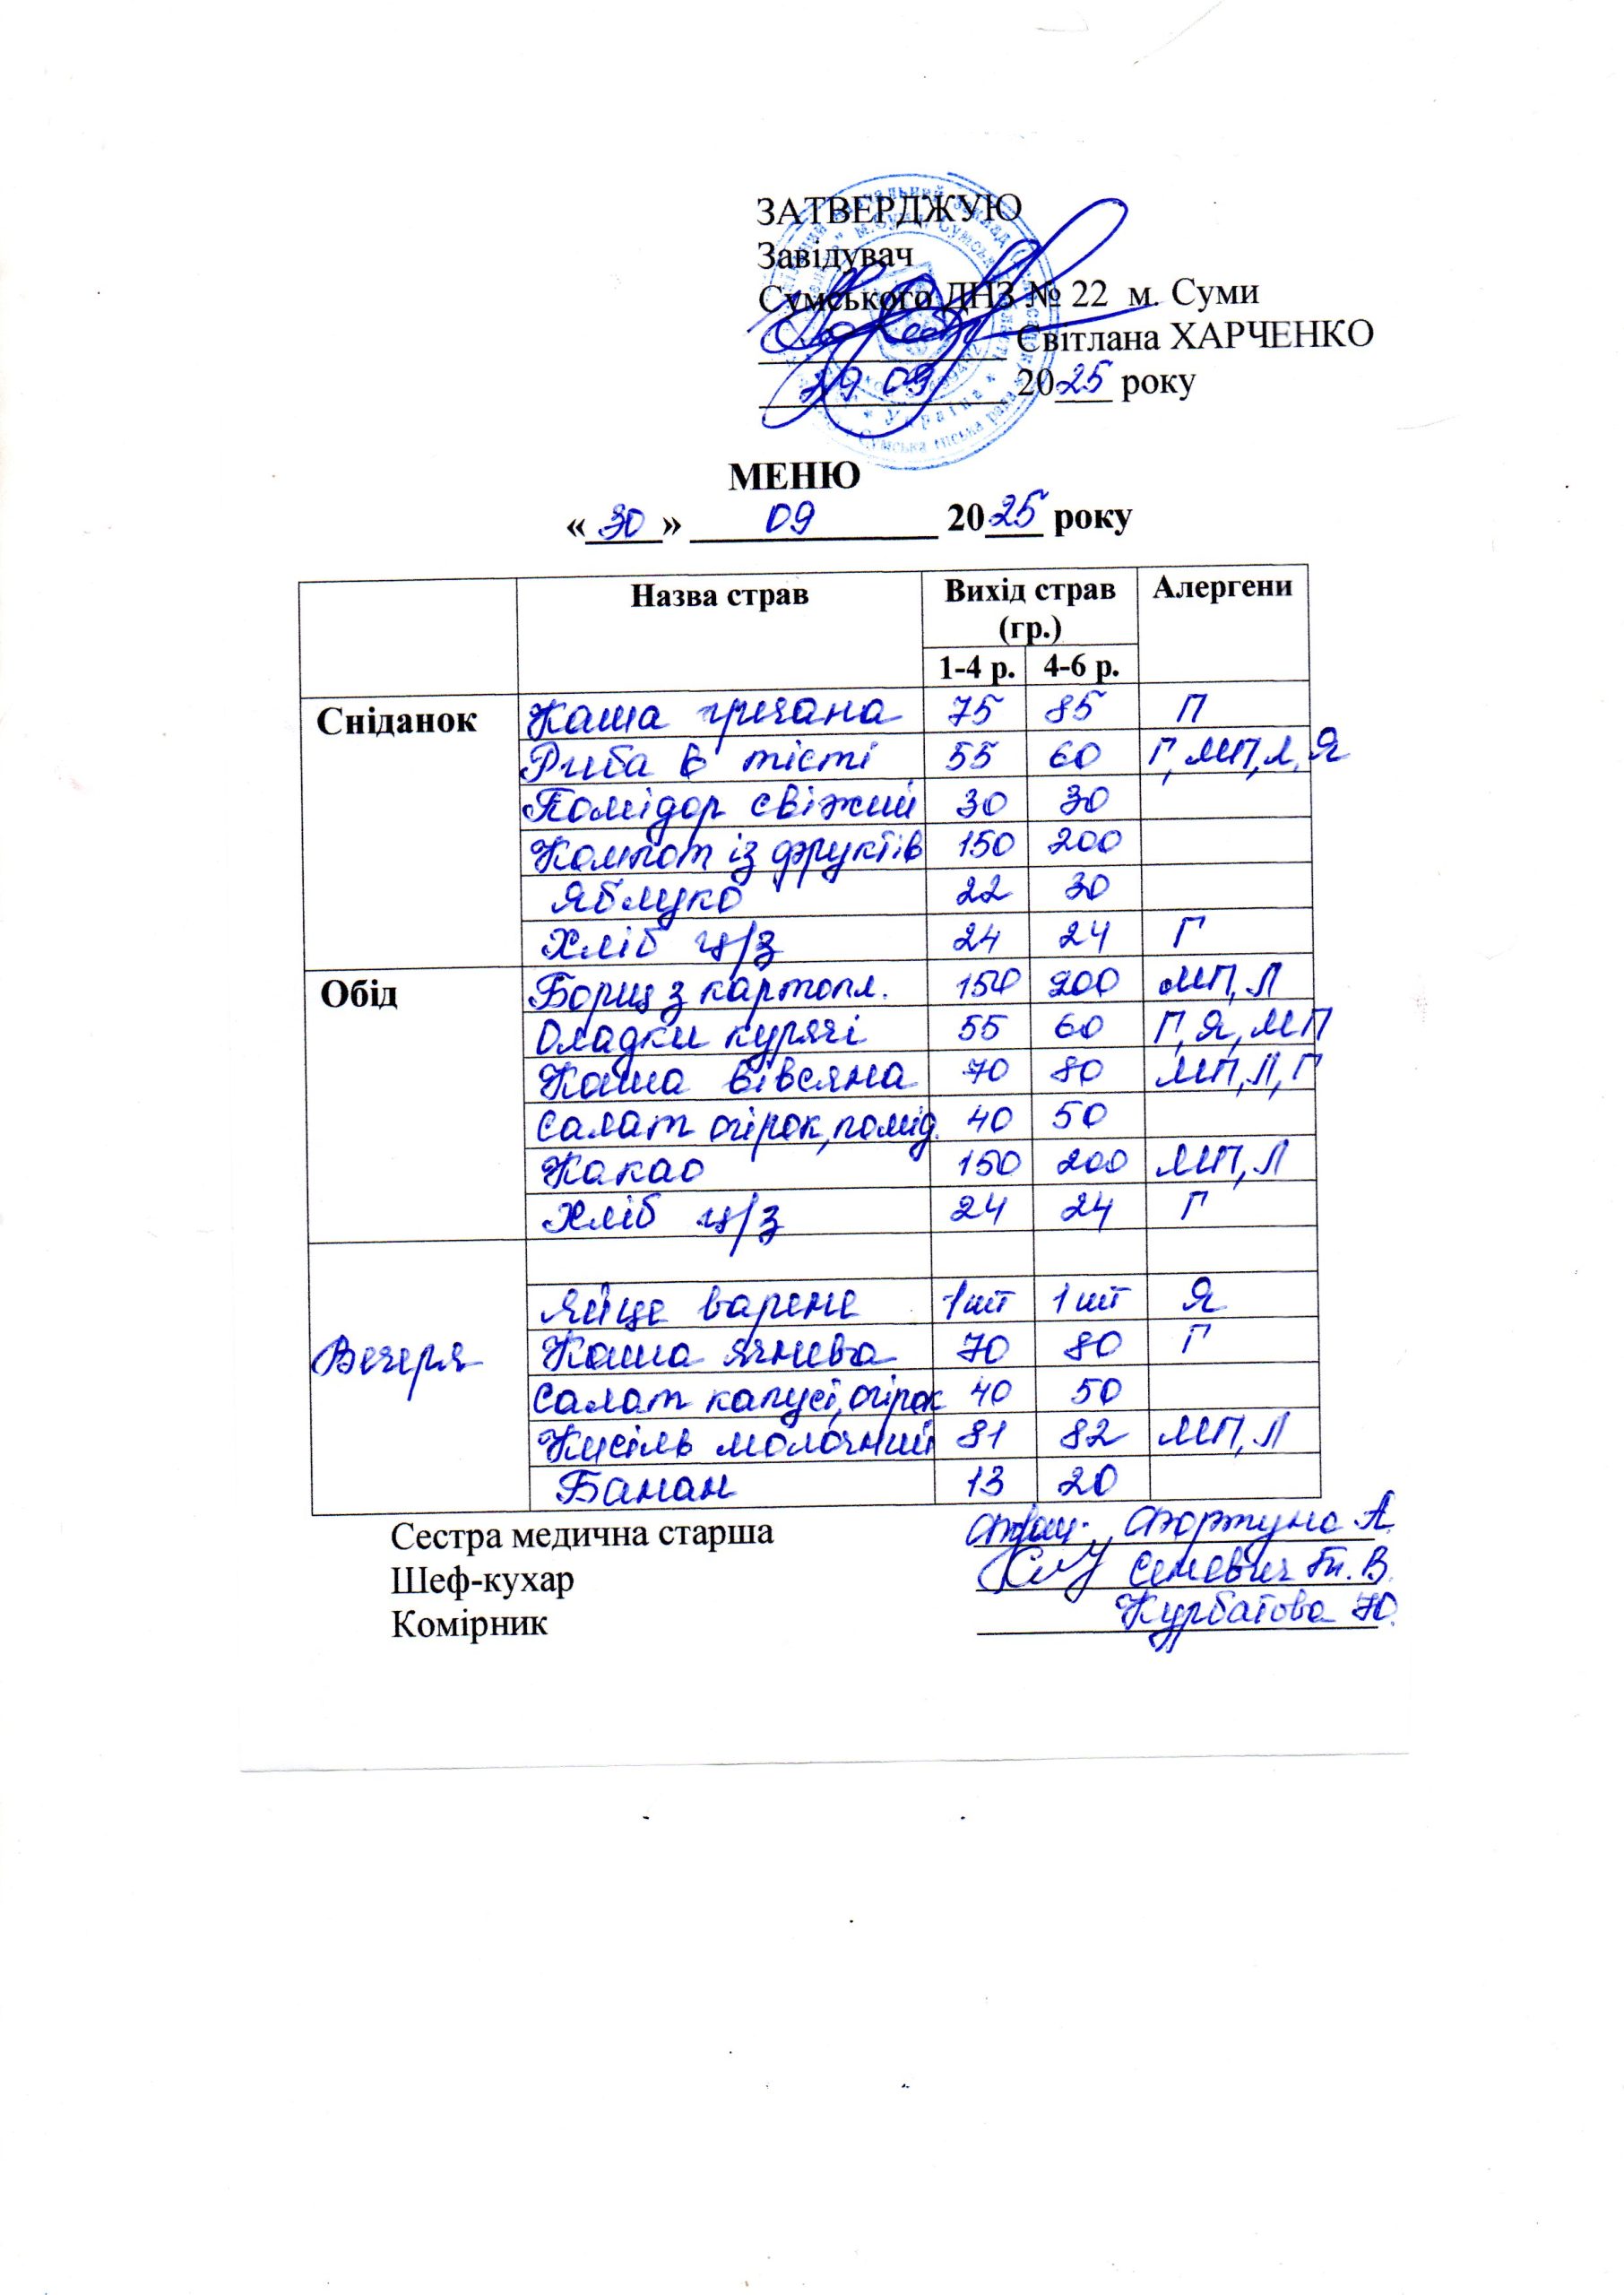 ЗАТВЕРДЖУЮ
Завідувач
Сумського ДНЗ № 22 м. Суми
Світлана ХАРЧЕНКО
29 09 2025 року
МЕНЮ
«30» 09 2025 року
Назва страв Вихід страв (гр.) Алергени
1-4 р. 4-6 р.
Сніданок Каша гречана 75 85 П
Риба в тісті 55 60 Г, МП, Л, Я
Помідор свіжий 30 30
Компот із фруктів 150 200
Яблуко 22 30
Хліб ц/з 24 24 Г
Обід Борщ з картопл. 150 200 МП, Л
Оладки курячі 55 60 Г, Я, МП
Каша вівсяна 70 80 МП, Л, Г
Салат огірок, помід. 40 50
Какао 150 200 МП, Л
Хліб ц/з 24 24 Г
Вечеря
Яйце варене 1шт 1шт Я
Каша ячнева 70 80 Г
Салат капуст, огірок 40 50
Кисіль молочний 81 82 МП, Л
Банан 13 20
Сестра медична старша Фортуна А.
Шеф-кухар Семевич Т. В.
Комірник Курбатова Ю.